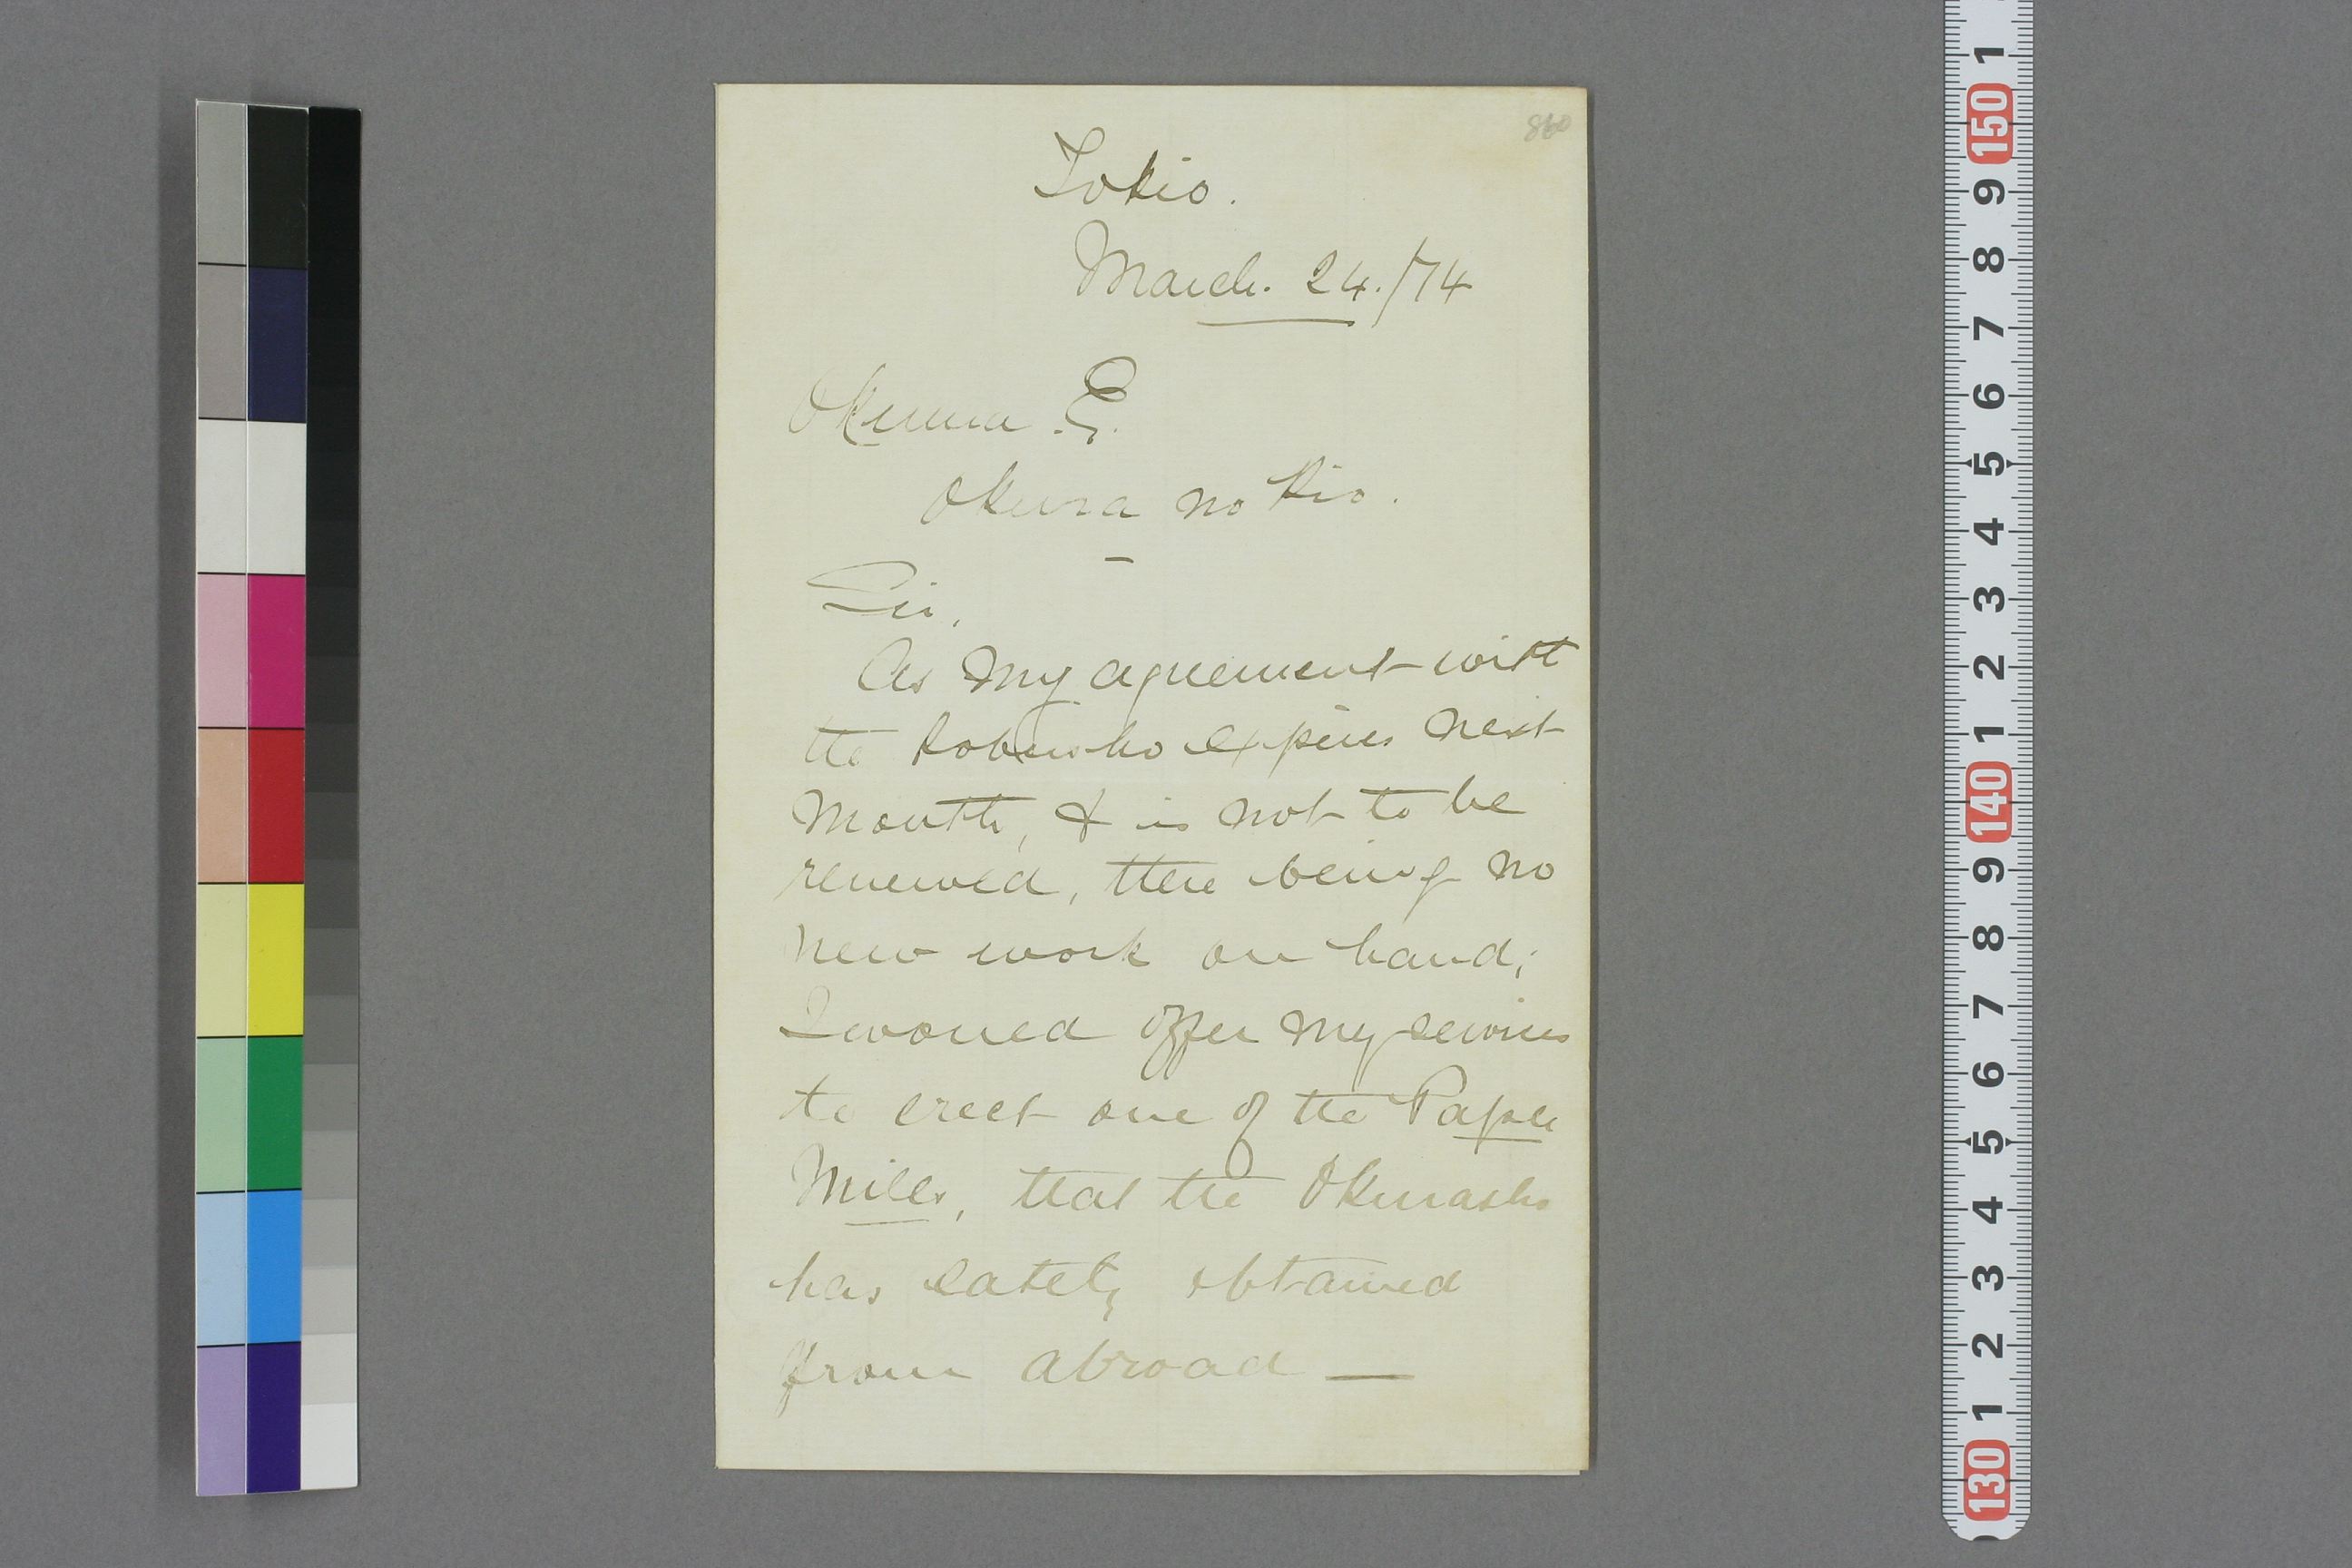 860
Tokio.
March. 24./74
Okuma .E.
Okura no Kio.
Sir,
As my agreement with
the Kobusho expires next
month, & is not to be
renewed, there being no
new work on hand;
I would offer my services
to erect one of the Paper
Mills, that the Okurasho
has lately obtained
from abroad —
1
150
9
8
7
6
5
4
3
2
1
140
9
8
7
6
5
4
3
2
1
130